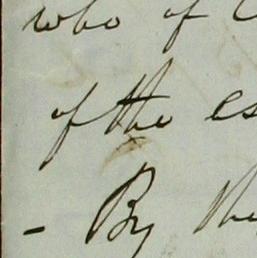 who of
of the es
- By the